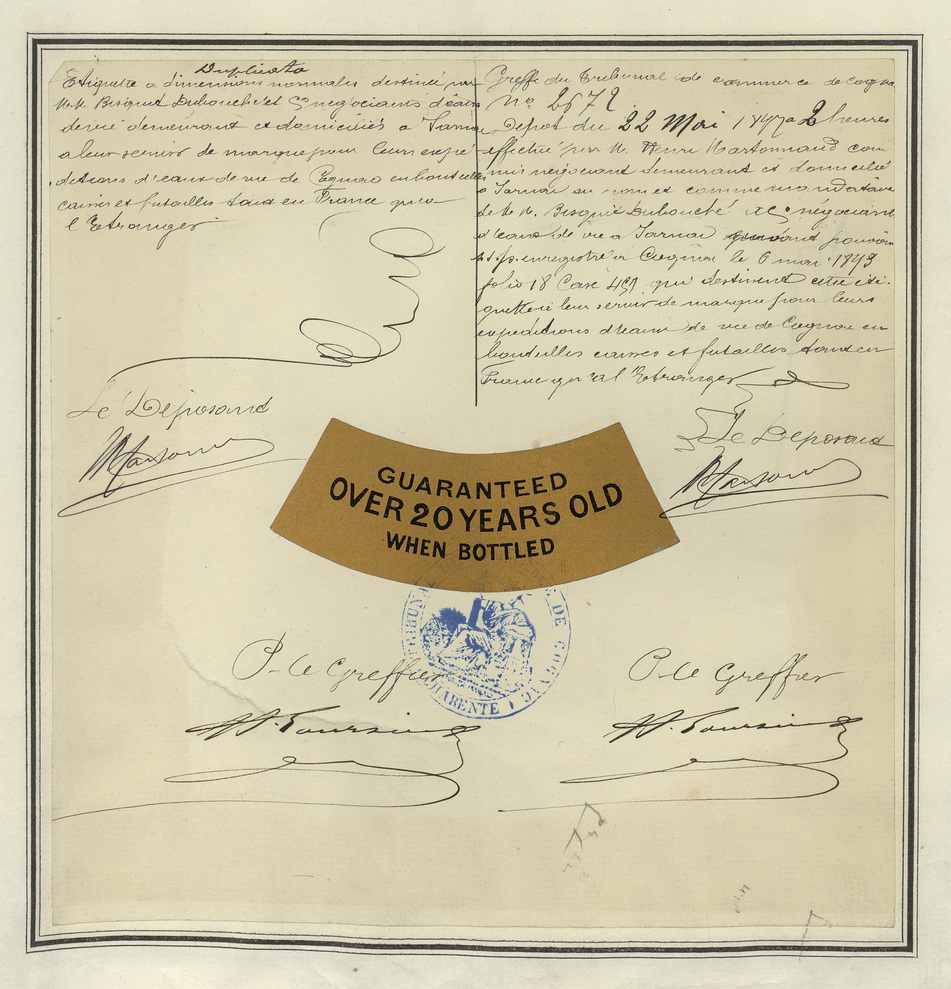 Duplicata
Etiquette a dimensions normales destinée par
M.M. Bisquit Dubouché et Cie négociants d'eaux
de vie demeurant et domiciliés a Jarnac
a leur servir de marque pour leurs expé
ditions d'eaux de vie de Cognac en bouteilles
caisses et futailles tant en France qu'a
l'Etranger
Le Déposand
Greffe du Tribunal de commerce de Cogna
No 2672
Depot du 22 Mai 1897 a 2 heures
effectué par M. Henri com
mis négociant demeurant et domicilié
a Jarnac au nom et comme mandataire
de M.M. Bisquit Dubouché et Cie négociants
d'eaux de vie a Jarnac suivant pouvoir
s.s.p. enregistré a Cognac le 6 mai
folio 18 Case qui destinent cette éti
quette a leur servir de marque pour leurs
expéditions d'eaux de vie de Cognac en
bouteilles caisses et futailles tant en
France qu'a l'Etranger
Le Déposand
GUARANTEED
OVER 20 YEARS OLD
WHEN BOTTLED
TRIBUNAL DE COGNAC
CHARENTE
P. le Greffier
P. le Greffier